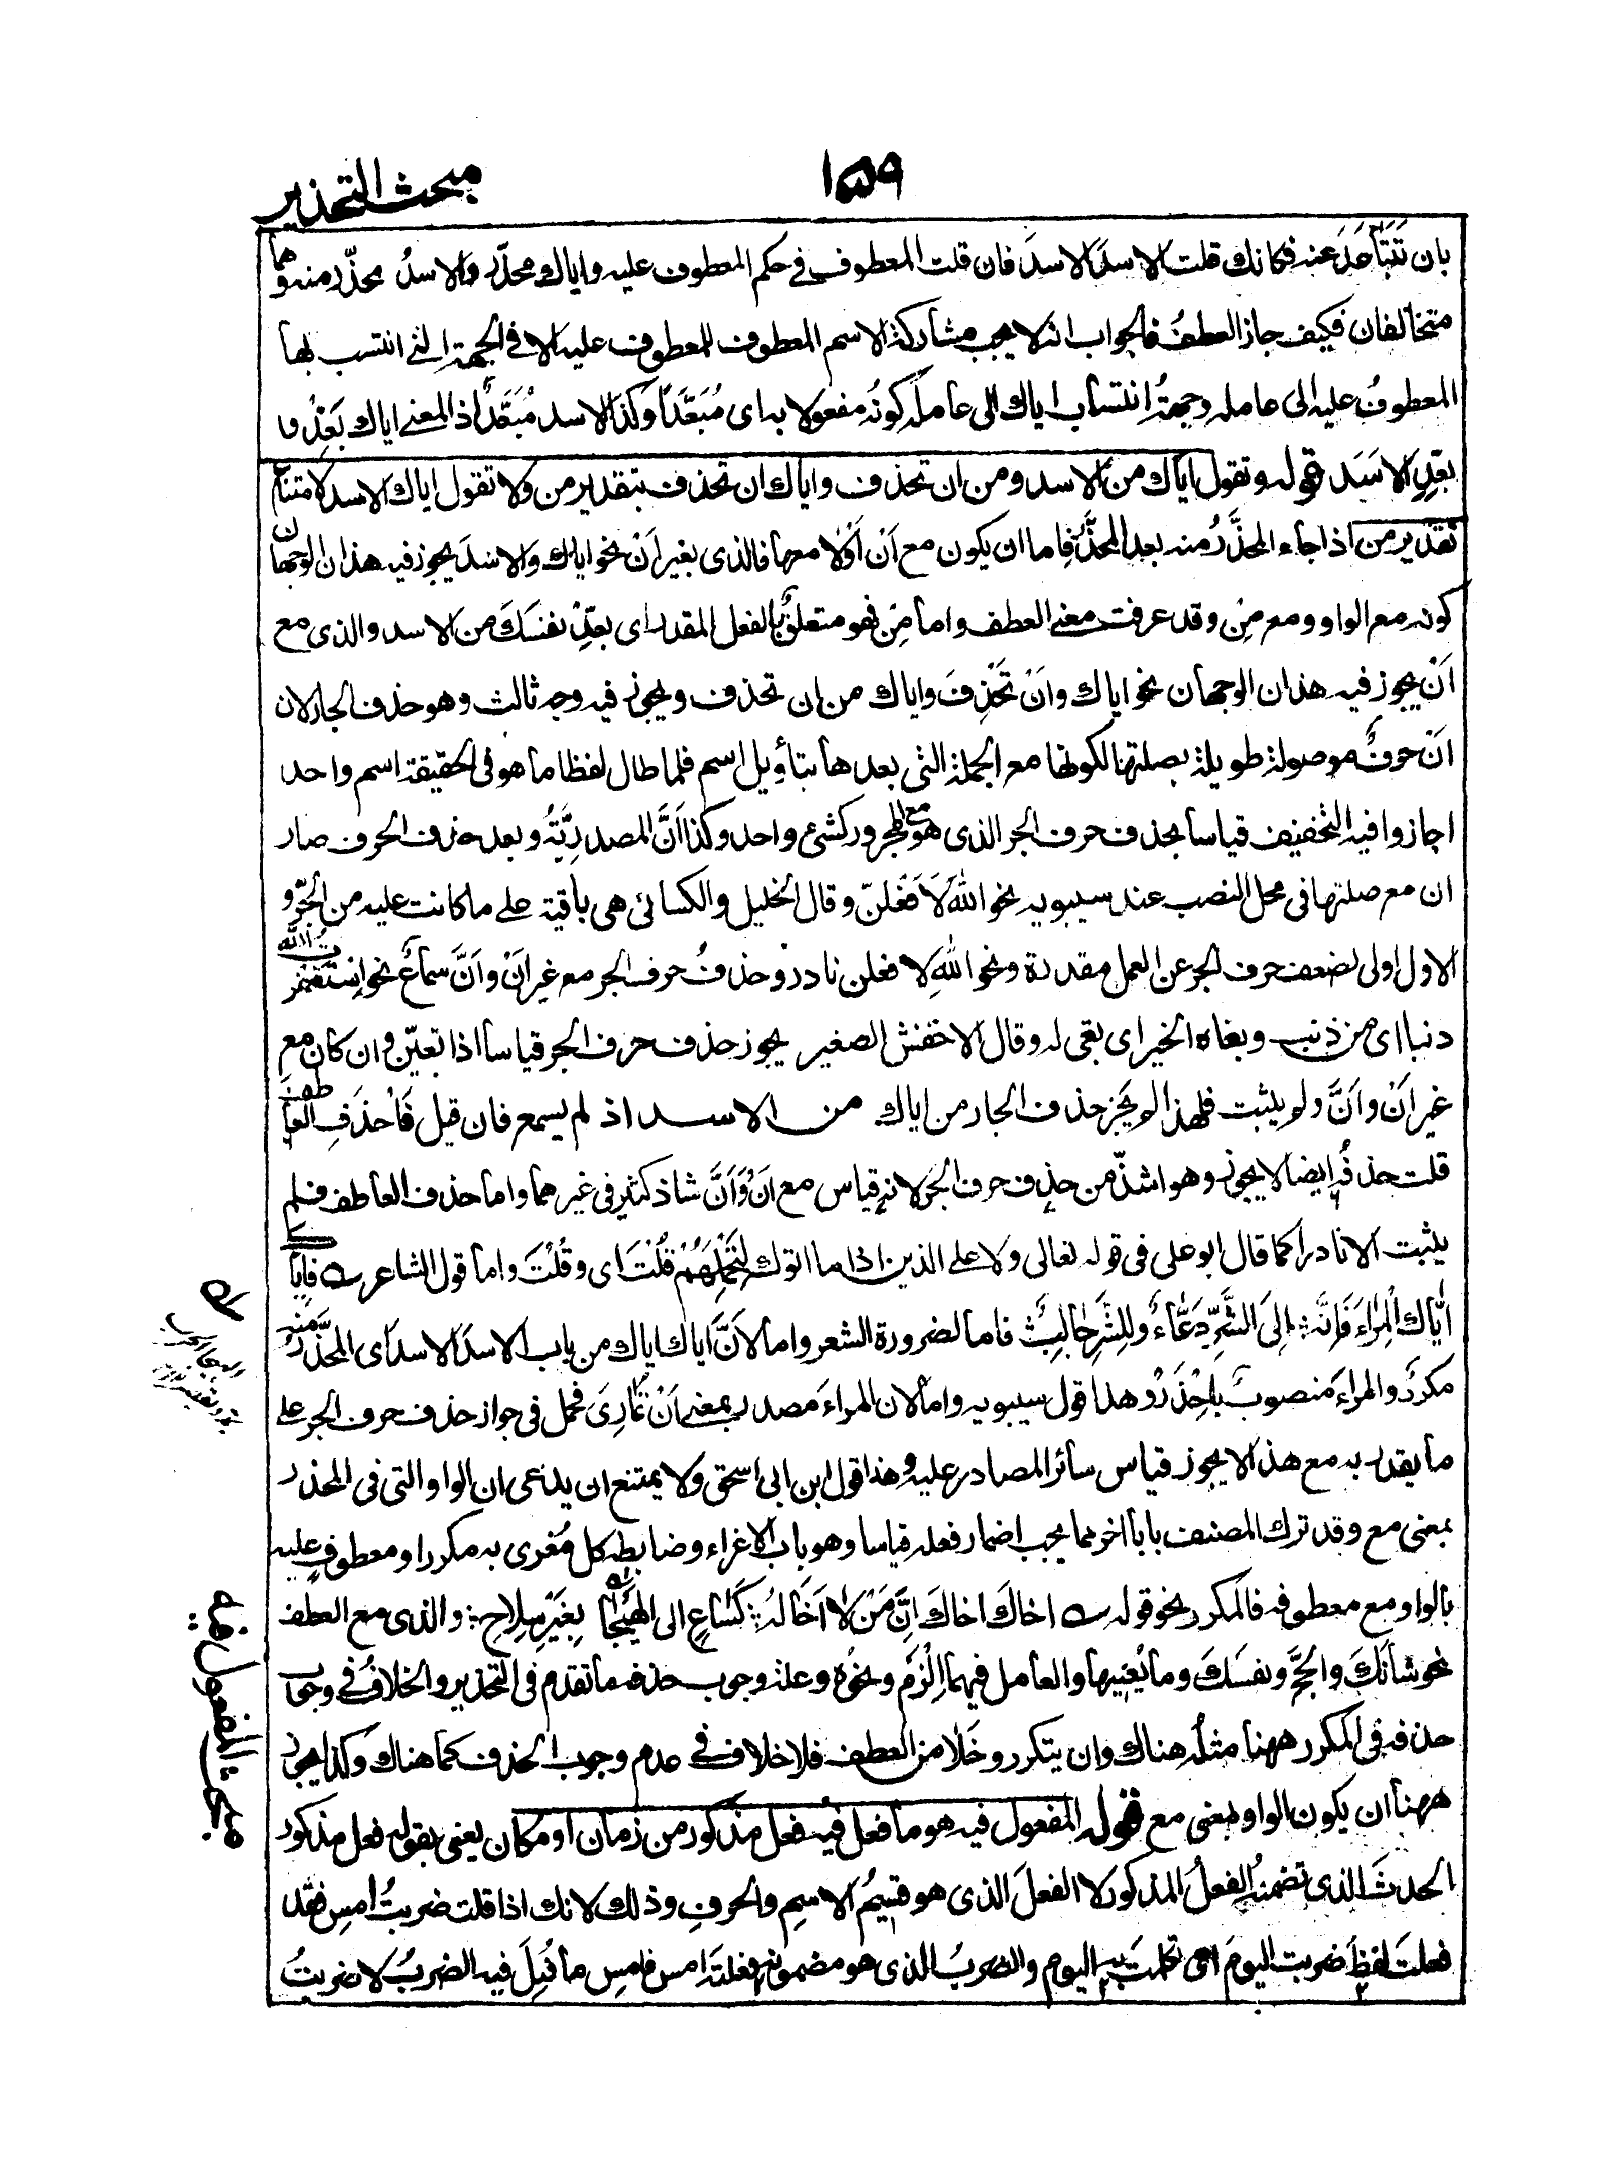 ١٥٩
مبحث التحذير
بان تَتَبَاعَدَ عنه فكانك قلت الاسدَ الاسدَ فان قلت المعطوف في حكم المعطوف عليه واياك محذّر والاسدُ محذّر منه وهما
متخالفان فكيف جاز العطفُ فالجواب انه لا يجب مشاركة الاسم المعطوف للمعطوف عليه الا في الجهة التي انتسب بها
المعطوفُ عليه الى عامله وجهةُ انتساب اياك الى عامله كونُه مفعولا به اى مُبَعَّدًا وكذا الاسد مُبَعَّدٌ اذ المعنى اياك بَعِّدْ و
بعّدِ الاسَدَ قوله وتقول اياك من الاسد ومن ان تحذف واياك ان تحذف بتقدير من ولا تقول اياك الاسد لامتناع
تقدير من اذا جاء المحذَّرُ منه بعد المحذَّر فاما ان يكون مع اَنْ اَوْ لا معها فالذى بغير اَنْ نحو اياك والاسَدَ يجوز فيه هذان الوجهان
كونه مع الواو ومع مِن وقد عرفت معنى العطف واما مِن فهو متعلقٌ بالفعل المقدر اى بعّد نفسَكَ من الاسد والذى مع
اَنْ يجوز فيه هذان الوجهان نحو اياك واَنْ تَحْذِفَ واياك من ان تحذف ويجوز فيه وجه ثالث وهو حذف الجار لان
اَنْ حرفٌ موصولة طويلة بصلتها لكونها مع الجملة التى بعدها بتأويل اسم فلما طال لفظا ما هو فى الحقيقة اسم واحد
اجازوا فيه التخفيف قياسا بحذف حرف الجر الذى هو مع المجرور كشئ واحد وكذا اَنَّ المصدريّةُ وبعد حذف الحرف صار
ان مع صلتها فى محل النصب عند سيبويه نحو اللهَ لَاَفْعَلَنّ وقال الخليل والكسائى هى باقية على ما كانت عليه من الجرّ و
الاول اولى لضعف حرف الجر عن العمل مقدرة ونحو اللهِ لافعلن نادر وحذفُ حرف الجر مع غير اَنْ واَنَّ سماعٌ نحو اِستغفرتُ الله
ذنبا اى من ذنب وبغاه الخير اى بغى له وقال الاخفش الصغير يجوز حذف حرف الجر قياسا اذا تعيّن وان كان مع
غير اَنْ واَنَّ ولم يثبت فلهذا لم يَجز حذف الجار من اياك من الاسد اذ لم يسمع فان قيل فَاحْذفِ العاطفَ
قلت حذفُه ايضا لا يجوز وهو اشذّ من حذف حرف الجر لانه قياس مع اَنْ وَاَنَّ شاذ كثير فى غيرهما واما حذف العاطف فلم
يثبت الا نادرا كما قال ابو على فى قوله تعالى ولا على الذين اذا ما اتوك لِتَحْمِلَهُمْ قُلْتَ اى وقُلْتَ واما قول الشاعر فايّاك
اِيّاك المِراءَ فَاِنَّه اِلَى الشَّرِّ دَعّاءٌ وللشّرِّ جالِبٌ فاما لضرورة الشعر واما لاَنَّ اياك اياك من باب الاسدَ الاسدَ اى المحذَّرُ منه
مكررٌ والمراءَ منصوب باِحْذَرْ وهذا قول سيبويه واما لان المراءَ مصدر بمعنى اَنْ تُمَارِىَ فحمل فى جواز حذف حرف الجر على
ما يقدر به مع هذا لا يجوز قياس سائر المصادر عليه وهذا قول ابن ابى اسحق ولا يمتنع ان يدعى ان الواو التى فى المحذر
بمعنى مع وقد ترك المصنف بابا اخر مما يجب اضمار فعله قياسا وهو باب الاغراء وضابطه كل مُغرى به مكررا ومعطوف عليه
بالواو مع معطوفه فالمكرر نحو قوله اخاك اخاك اِنَّ مَنْ لا اَخَا لَهُ كَسَاعٍ الى الهَيْجَا بِغَيْرِ سِلاحِ والذى مع العطف
نحو شأنَكَ والحجَّ ونفسَكَ وما يُعْنِيها والعامل فيهما اِلْزَمْ ونحوُه وعلة وجوب حذفه ما تقدم فى التحذير والخلافُ فى وجوب
حذفه فى المكرر ههنا مثلُه هناك وان يتكرر وخَلَا من العطف فلا خلاف فى عدم وجوب الحذف كما هناك وكذا يجوز
ههنا ان يكون الواو بمعنى مع قوله المفعول فيه هو ما فعل فيه فعل مذكور من زمان او مكان يعنى بقوله فعل مذكور
الحدثَ الذى تضمنه الفعلُ المذكور لا الفعلَ الذى هو قسيمُ الاسم والحرف وذلك لانك اذا قلت ضربتُ امس فقد
فعلتَ لفظَ ضربت اليومَ اى تكلمتَ به اليوم والضربُ الذى هو مضمونه فعلتَه امس فامسِ ما فُعِلَ فيه الضربُ لا ضربتُ
مبحث المفعول فيه